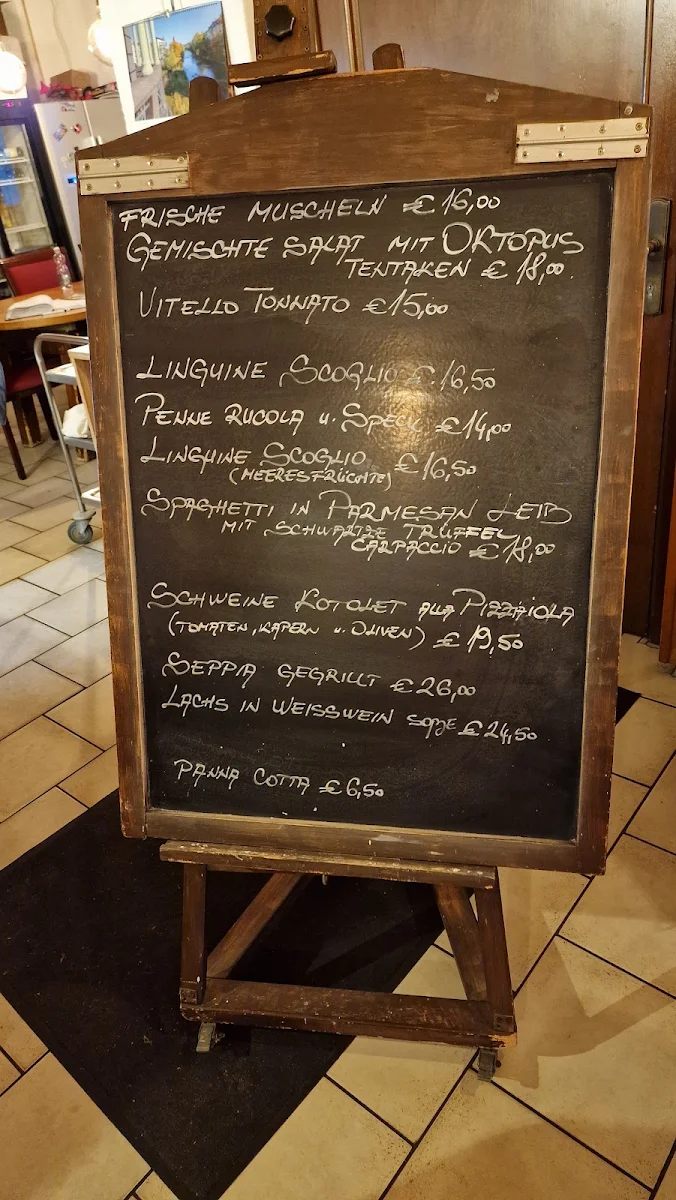 FRISCHE MUSCHELN € 16,00
GEMISCHTE SALAT MIT OKTOPUS
TENTAKEN € 18,00.
VITELLO TONNATO € 15,00
LINGUINE SCOGLIO €.16,50
PENNE RUCOLA u. SPECK € 14,00
LINGUINE SCOGLIO € 16,50
(MEERESFRÜCHTE)
SPAGHETTI IN PARMESAN LEIB
MIT SCHWARTZE TRÜFFEL
CARPACCIO € 18,00
SCHWEINE KOTOLET ALLA PIZZAIOLA
(TOMATEN, KAPERN u. OLIVEN) € 19,50
SEPPIA GEGRILLT € 26,00
LACHS IN WEISSWEIN SOßE € 24,50
PANNA COTTA € 6,50